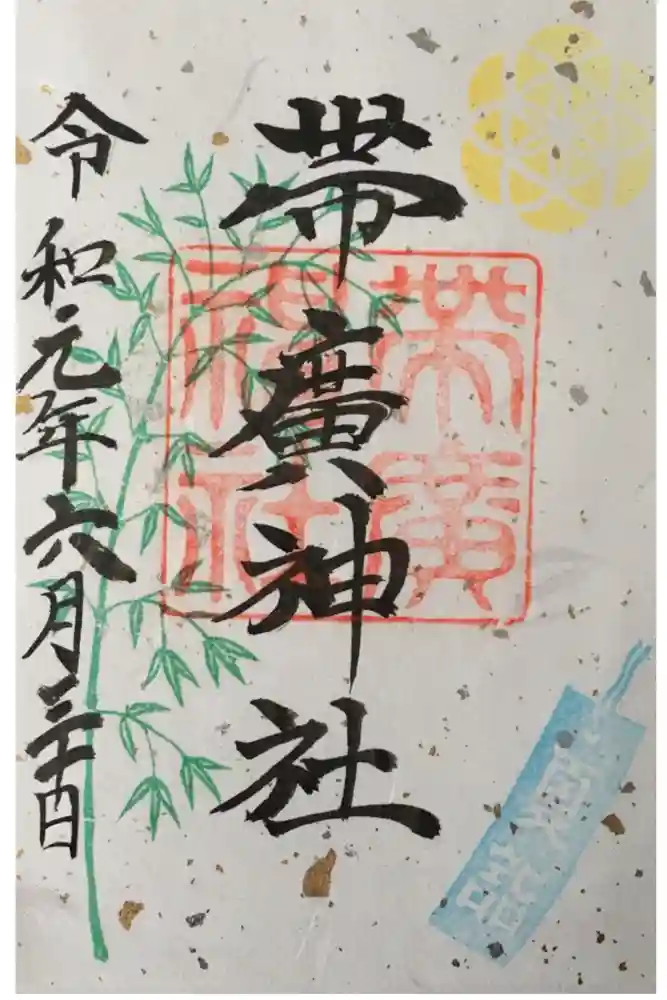 帯廣神社
帯廣
神社
令和元年六月三十日